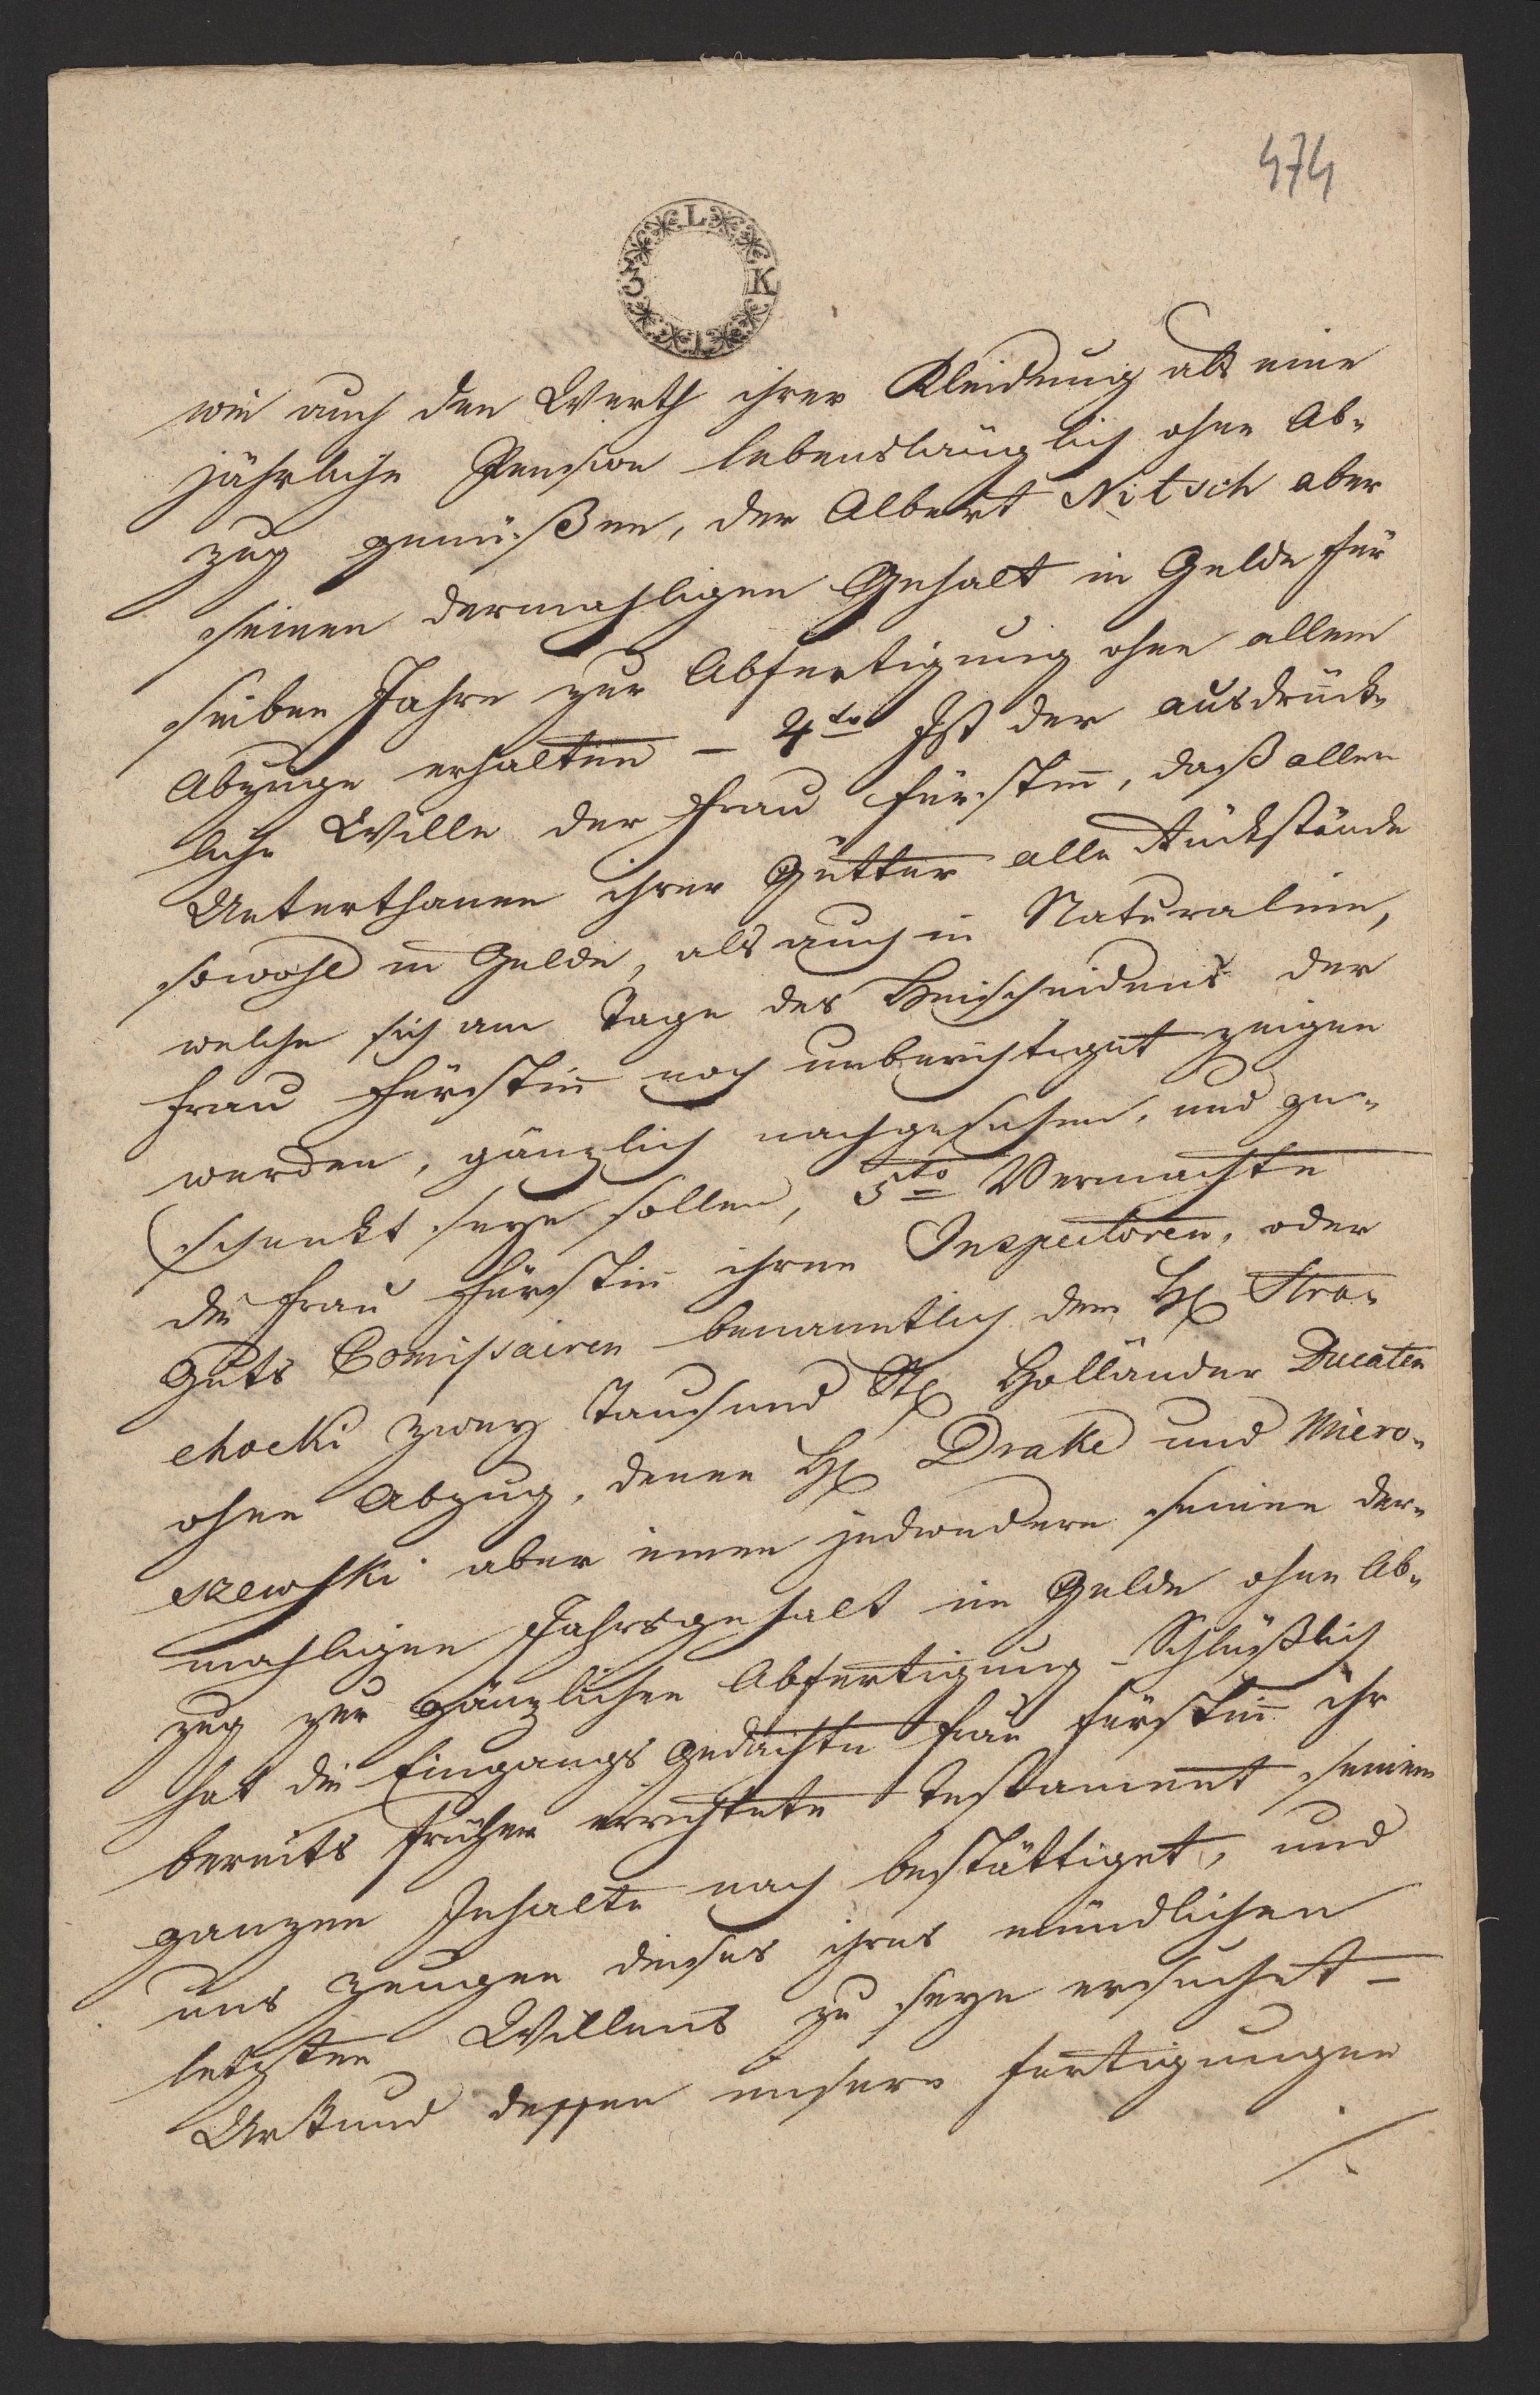 474
L
3 K
I
wie auch den Werth ihrer Kleidung als eine
jährliche Pension lebenslänglich ohne Ab-
zug genüßen, der Albert Nitsch aber
seinen dermahligen Gehalt in Gelde für
sieben Jahre zur Abfertigung ohne allem
Abzuge erhalten – 4to Ist der ausdrück-
liche Wille der Frau Fürstin, daß allen
Unterthanen ihrer Gütter alle Rückstände
sowohl in Gelde, als auch in Naturalien,
welche sich am Tage des Hinscheidens der
Frau Fürstin noch unberichtiget zeigen
werden, gänzlich nachgesehen, und ge-
schenkt seyn sollen, 5to Vermachte
die Frau Fürstin ihren Inspectoren, oder
Guts Comissairen benanntlich dem H. Stro-
chocki zwey Tausend St. Holländer Ducaten
ohne Abzug, denen H. Drake und Miero-
szewski aber einen jedwedern seinen der-
mahligen Jahrsgehalt im Gelde ohne Ab-
zug zur gänzlichen Abfertigung – Schlüßlich
hat die Eingangs gedachte Frau Fürstin ihr
bereits früher errichtete Testament seinem
ganzen Inhalte nach bestättiget, und
uns Zeugen dieses ihres mündlichen
letzten Willens zu seyn ersuchet –
Urkund dessen unsere Fertigungen
./.